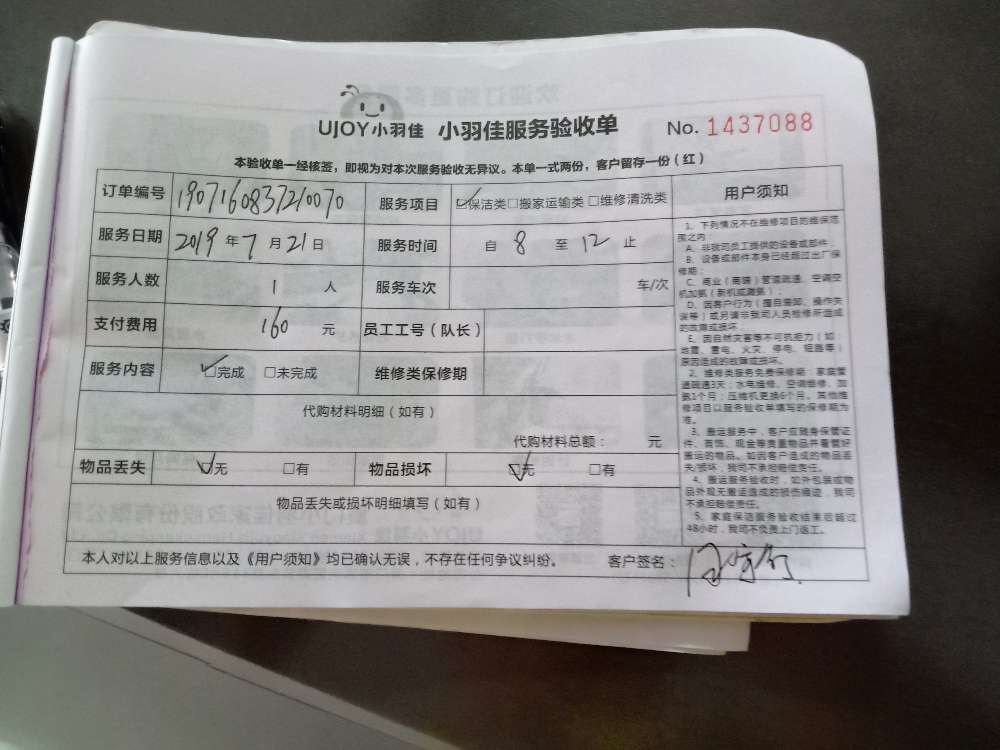 UJOY小羽佳 小羽佳服务验收单 No. 1437088
本验收单一经核签，即视为对本次服务验收无异议。本单一式两份，客户留存一份（红）
订单编号 1907160837210070 服务项目 ☑保洁类□搬家运输类□维修清洗类
服务日期 2019年7月21日 服务时间 自 8 至 12 止
服务人数 1 人 服务车次 车/次
支付费用 160 元 员工工号（队长）
服务内容 ☑完成 □未完成 维修类保修期
代购材料明细（如有）
代购材料总额： 元
物品丢失 ☑无 □有 物品损坏 ☑无 □有
物品丢失或损坏明细填写（如有）
本人对以上服务信息以及《用户须知》均已确认无误，不存在任何争议纠纷。 客户签名：
用户须知
1、下列情况不在维修项目的维保范
围之内：
A、非我司员工提供的设备或部件；
B、设备或部件本身已经超过出厂保
修期；
C、商业（商铺）管道疏通、空调空
机加氨（新机或藏氨）；
D、因客户行为（擅自装卸、操作失
误等）或另请非我司人员检修所造成
的故障或损坏；
E、因自然灾害等不可抗拒力（如：
地震、雷电、火灾、停电、短路等）
原因造成的故障或损坏。
2、维修类服务免费保修期：家庭管
道疏通3天；水电维修、空调维修、加
氨1个月；压缩机更换6个月。其他维
修项目以服务验收单填写的保修期为
准。
3、搬运服务中，客户应随身保管证
件、首饰、现金等贵重物品并看管好
搬运的物品。如因客户造成的物品丢
失/损坏，我司不承担赔偿责任。
4、搬运服务验收时，如外包装或物
品外观无搬运造成的损伤痕迹，我司
不承担赔偿责任。
5、家庭保洁服务验收结束后超过
48小时，我司不负责上门返工。